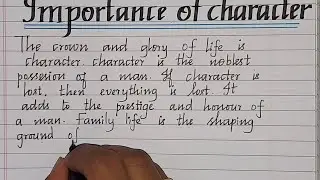 Importance of character
The crown and glory of life is
character. character is the noblest
possesion of a man. If character is
lost, then everything is lost. It
adds to the prestige and honour of
a man. Family life is the shaping
ground of